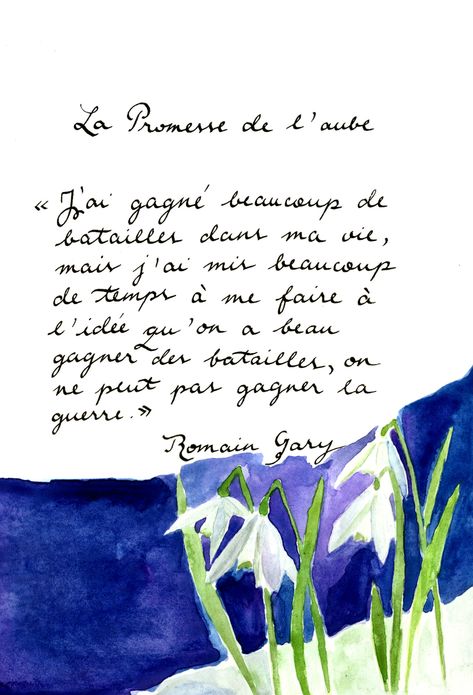 La Promesse de l'aube
« J'ai gagné beaucoup de
batailles dans ma vie,
mais j'ai mis beaucoup
de temps à me faire à
l'idée qu'on a beau
gagner des batailles, on
ne peut pas gagner la
guerre. »
Romain Gary